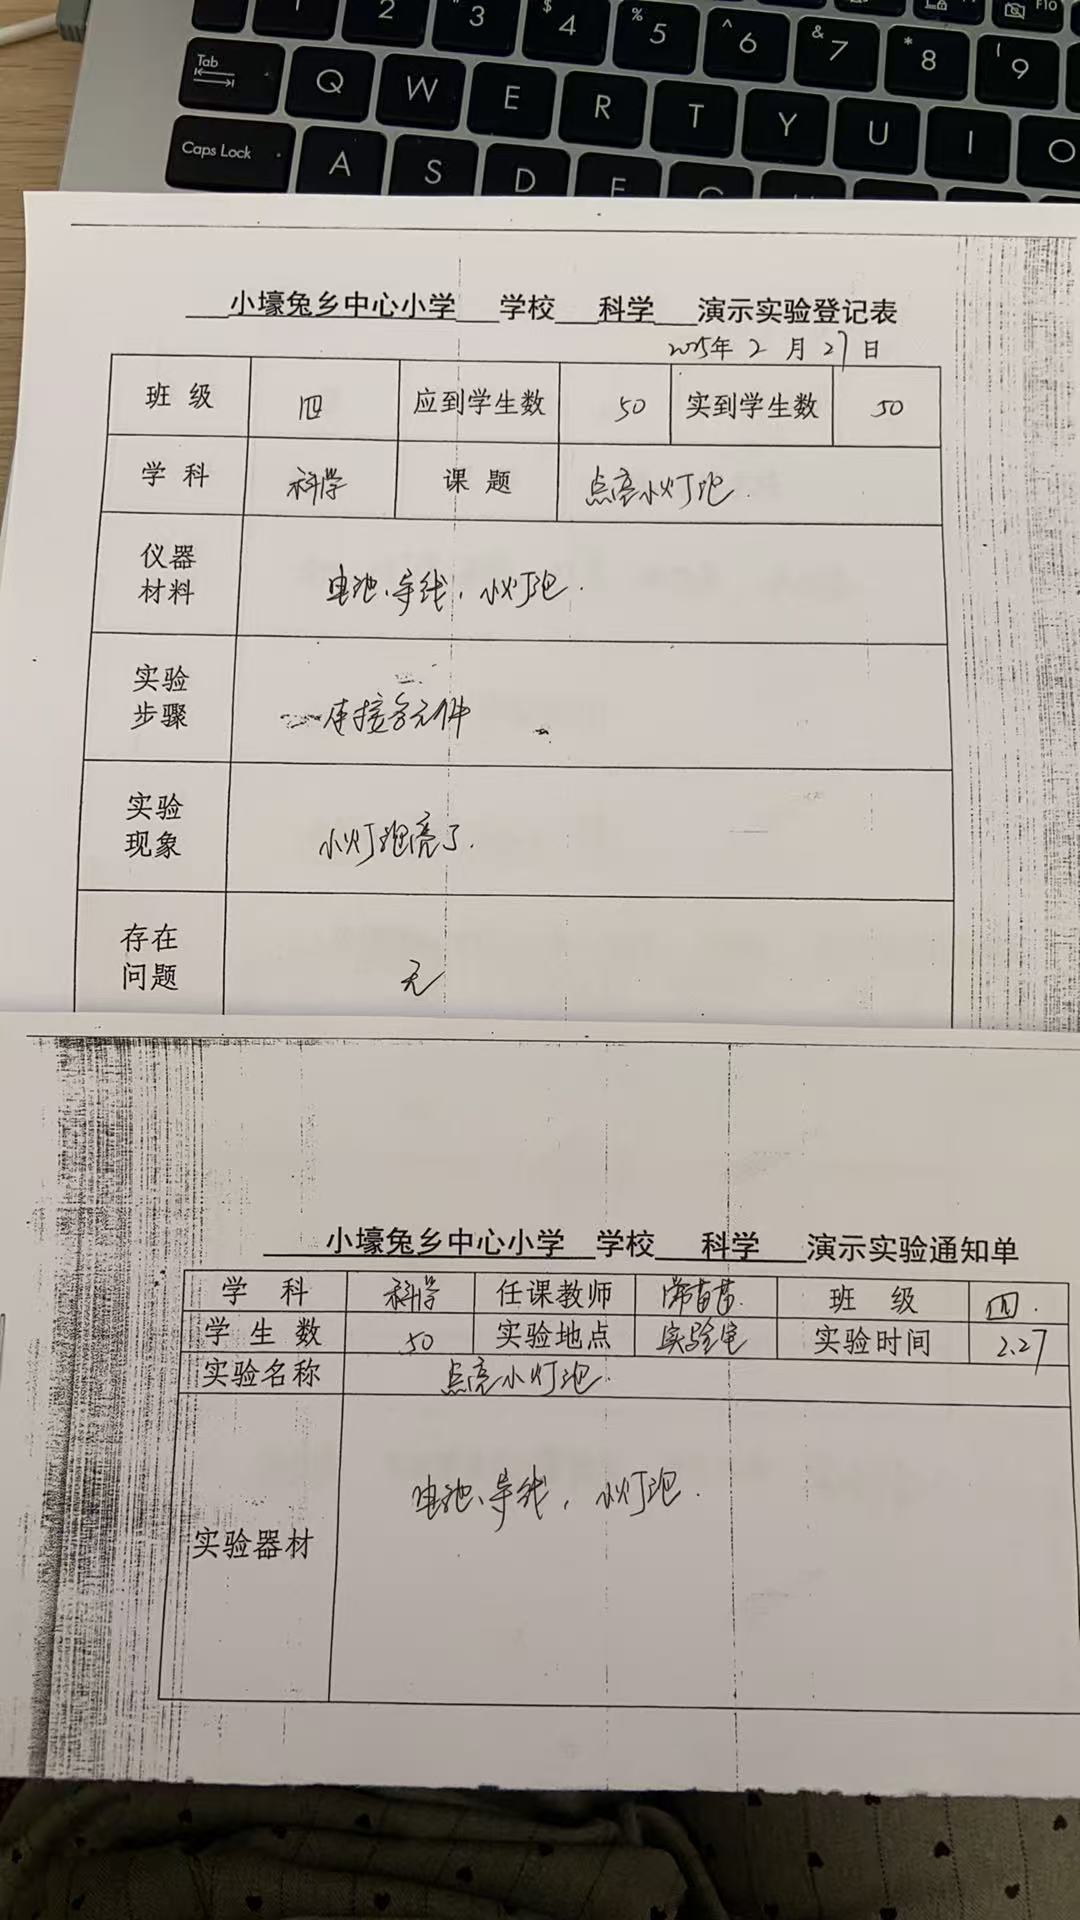 1 2 3 $ 4 % 5 ^ 6 & 7 * 8 ( 9 F10
Tab Q W E R T Y U I O
Caps Lock A S D F G
小壕兔乡中心小学 学校 科学 演示实验登记表
2025年 2 月 27 日
班 级 四 应到学生数 50 实到学生数 50
学 科 科学 课 题 点亮小灯泡.
仪器
材料 电池、导线, 小灯泡.
实验
步骤 连接各元件
实验
现象 小灯泡亮了.
存在
问题 无
小壕兔乡中心小学 学校 科学 演示实验通知单
学 科 科学 任课教师 苗苗. 班 级 四.
学 生 数 50 实验地点 实验室 实验时间 2.27
实验名称 点亮小灯泡.
实验器材 电池、导线, 小灯泡.